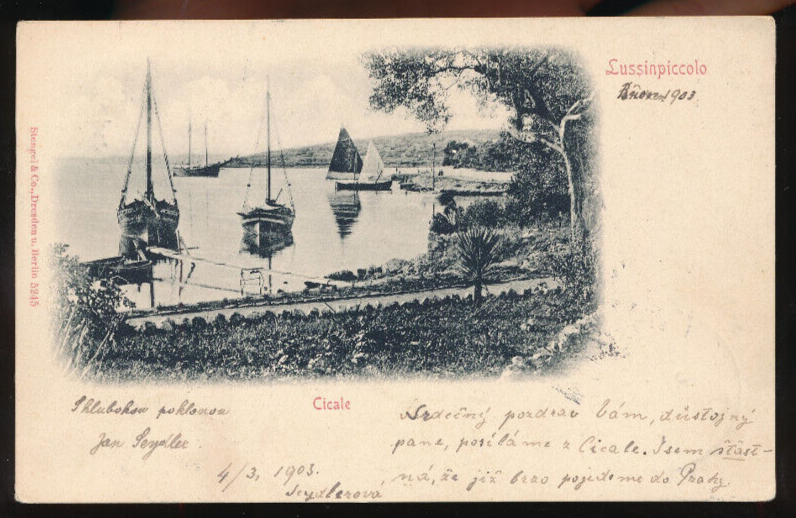 Lussinpiccolo
1903
Stengel & Co., Dresden u. Berlin 5245
Cicale
S hlubokou poklonou
Jan Seydler
4/3, 1903.
Seydlerova
Srdečný pozdrav Vám, důstojný
pane, posíláme z Cicale. Jsem šťast-
ná, že již brzo pojedeme do Prahy.